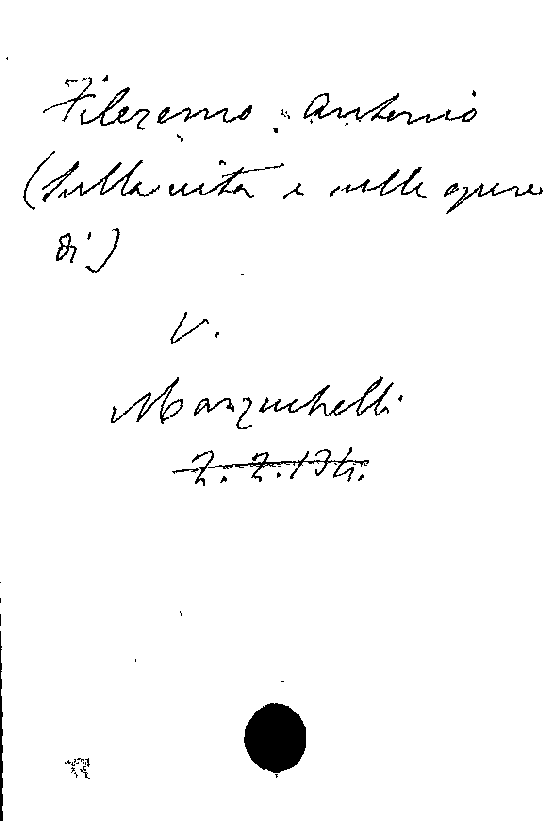 Fileremo Antonio
(Sulla vita e nelle opere
di)
V.
Manzuchelli
Z. Z. 134.